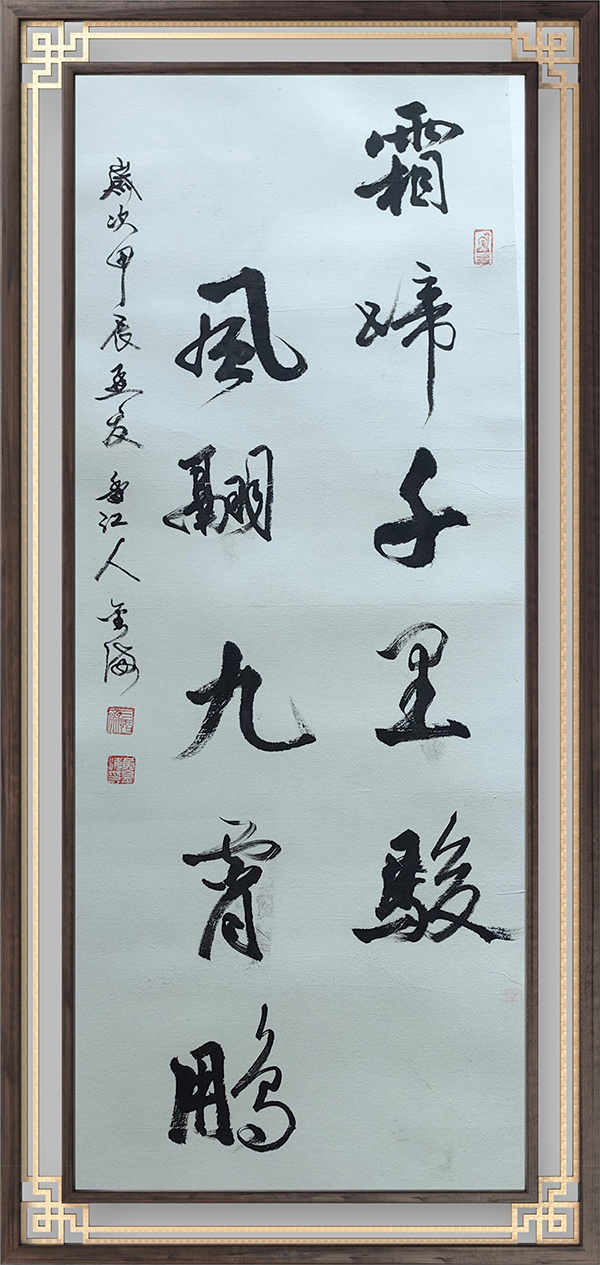 霜蹄千里駿
風翮九霄鵬
歲次甲辰孟夏 香江人